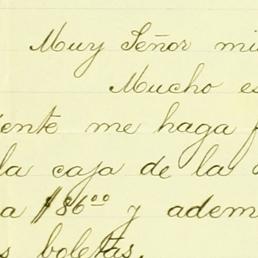 Muy Señor mi
Mucho es
iente me haga f
la caja de la
a $86⁰⁰ y adem
s boletas.